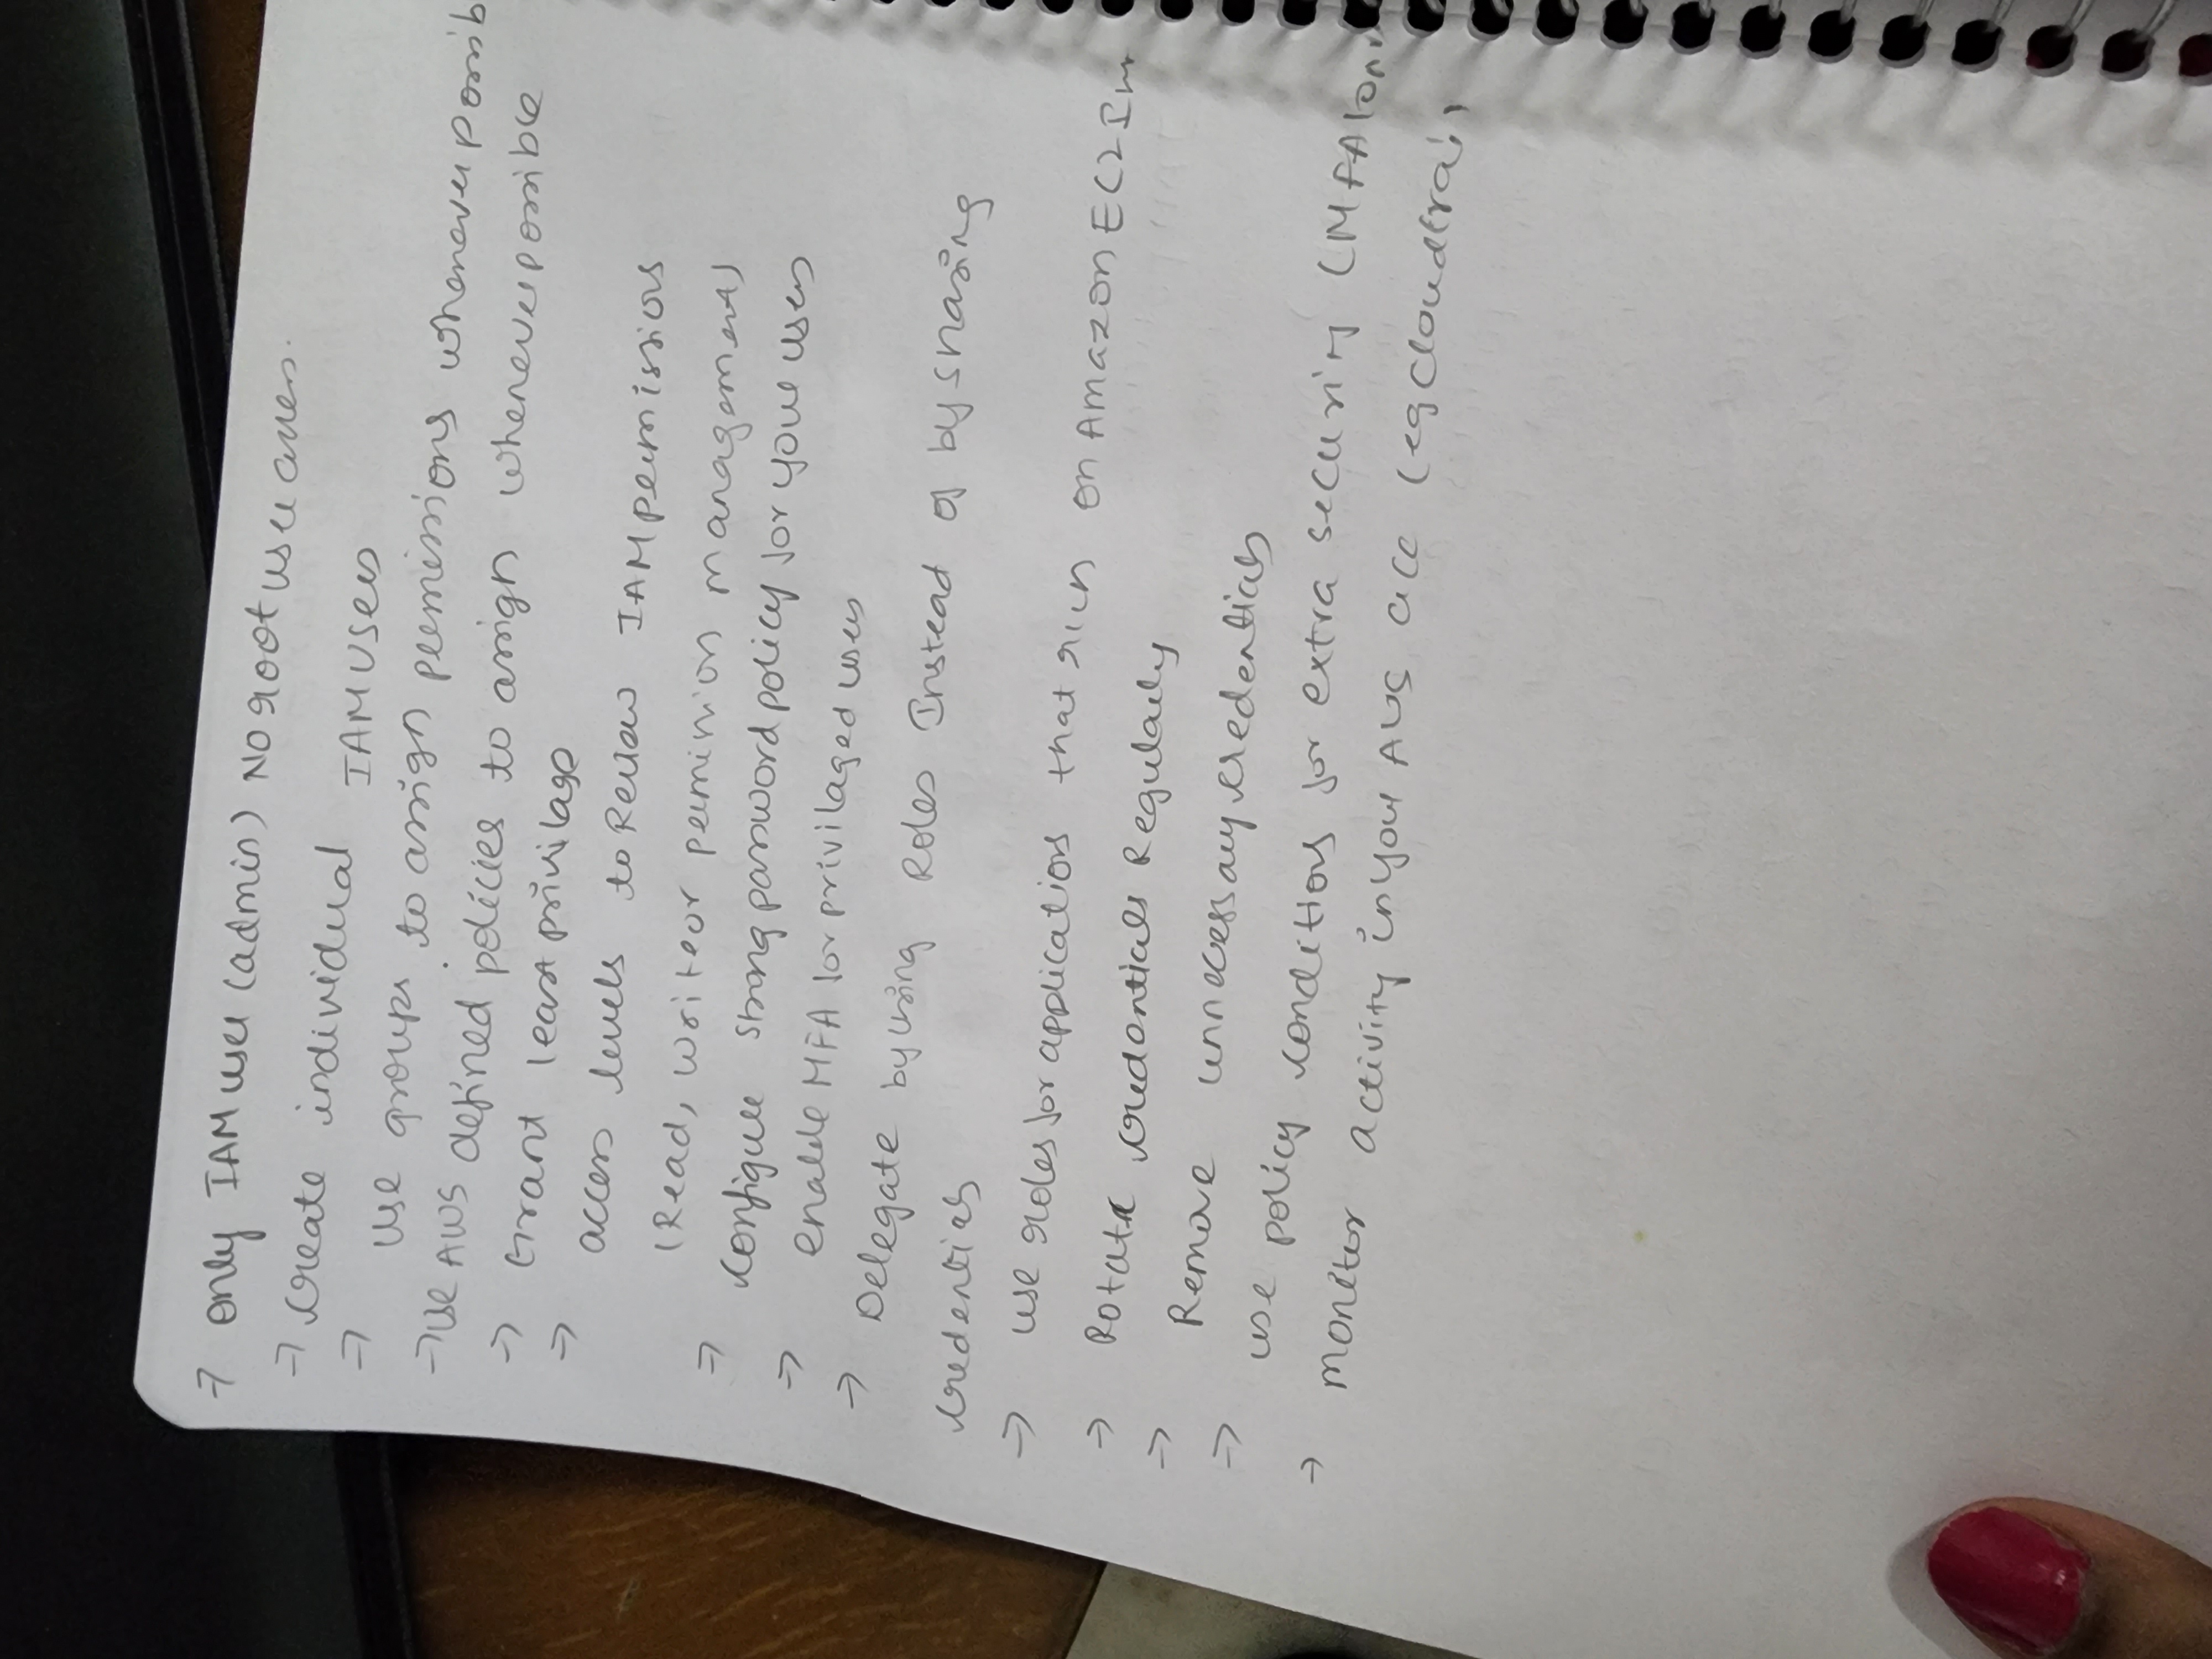 → only IAM user (admin) No root user access.
→ create individual IAM Users
→ use groups to assign permissions whenever possib
→ use AWS defined policies to assign whenever possible
→ Grant least privilage
→ access levels to Review IAM permissions
(Read, write or permission management)
→ configure strong password policy for your users
→ enable MFA for privilaged users
→ Delegate by using Roles Instead of by sharing
credentials
→ use roles for applications that run on Amazon EC2 Ins
→ Rotate credentials Regularly
→ Remove unnecessary credentials
→ use policy conditions for extra security (MFA
→ monitor activity in your AWS acc (eg cloudtrail)